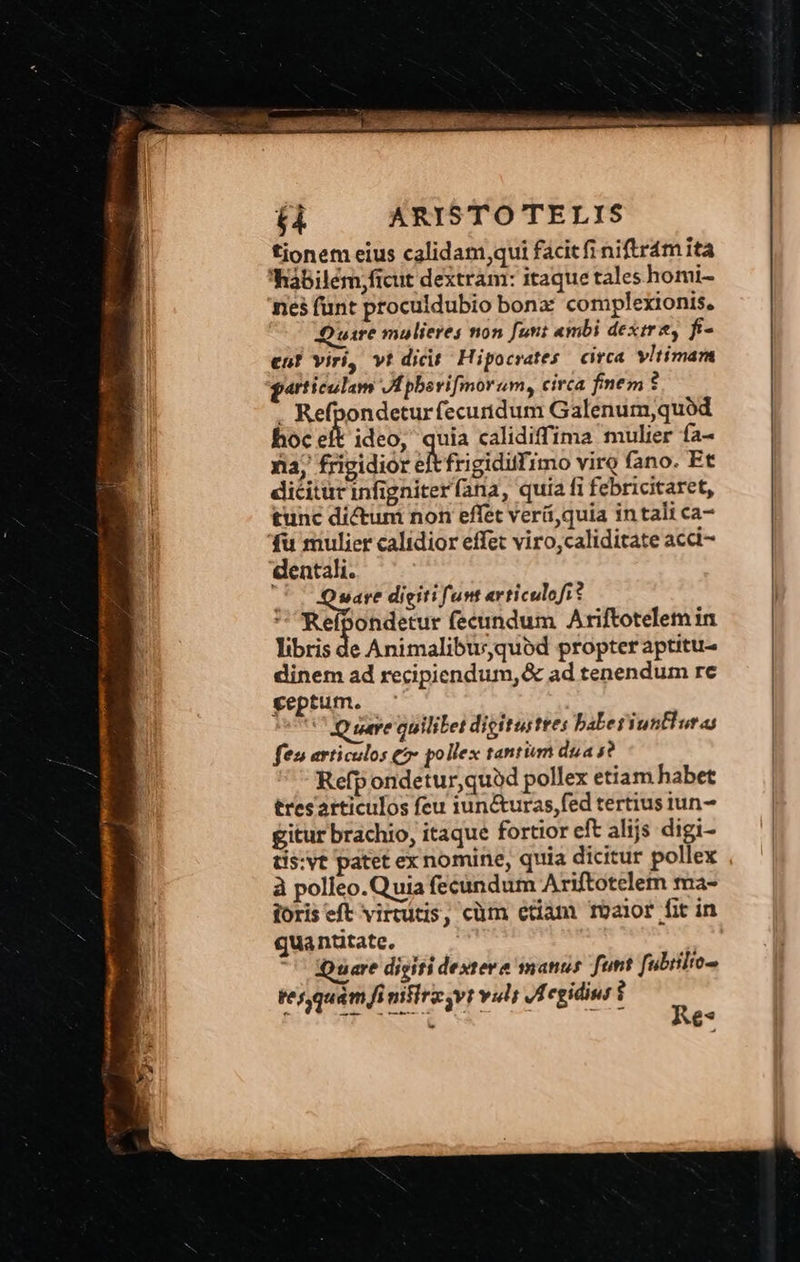 ſi ARISTOTELIS
tionem eius calidam,qui facit ſiniſtrám ita
habilem,ſicut dextram: itaque tales homi-
nes ſunt proculdubio bonæ complexionis.
Quare mulieres non ſunt ambi dextræ, ſi-
cut viri, vt dicit Hipocrates circa vltimam
particulam Aphoriſmorum, circa finem ?
Reſpondetur ſecundum Galenum,quòd
hoc eſt ideo, quia calidiſſima mulier ſa-
na, frigidior eſt frigidiſſimo viro ſano. Et
dicitur inſigniter ſana, quia ſi febricitaret,
tunc dictum non eſſet verũ,quia in tali ca-
ſu mulier calidior eſſet viro,caliditate acci-
dentali.
Quare digiti ſunt articuloſi?
Reſpondetur ſecundum Ariſtotelem in
libris de Animalibus,quòd propter aptitu-
dinem ad recipiendum,& ad tenendum re
ceptum.
Quare quilibet digitus tres habet iuncturas
ſeu articulos & pollex tantùm duas?
Reſpondetur,quòd pollex etiam habet
tres articulos ſeu iuncturas,ſed tertius iun-
gitur brachio, itaque fortior eſt alijs digi-
tis:vt patet ex nomine, quia dicitur pollex,
à polleo.Quia ſecundum Ariſtotelem ma-
ioris eſt virtutis, cùm etiam maior ſit in
quantitate.
Quare digiti dexteræ manus ſunt ſubtilio-
res,quàm ſiniſtræ,vt vult Aegidius ?
Reſ-